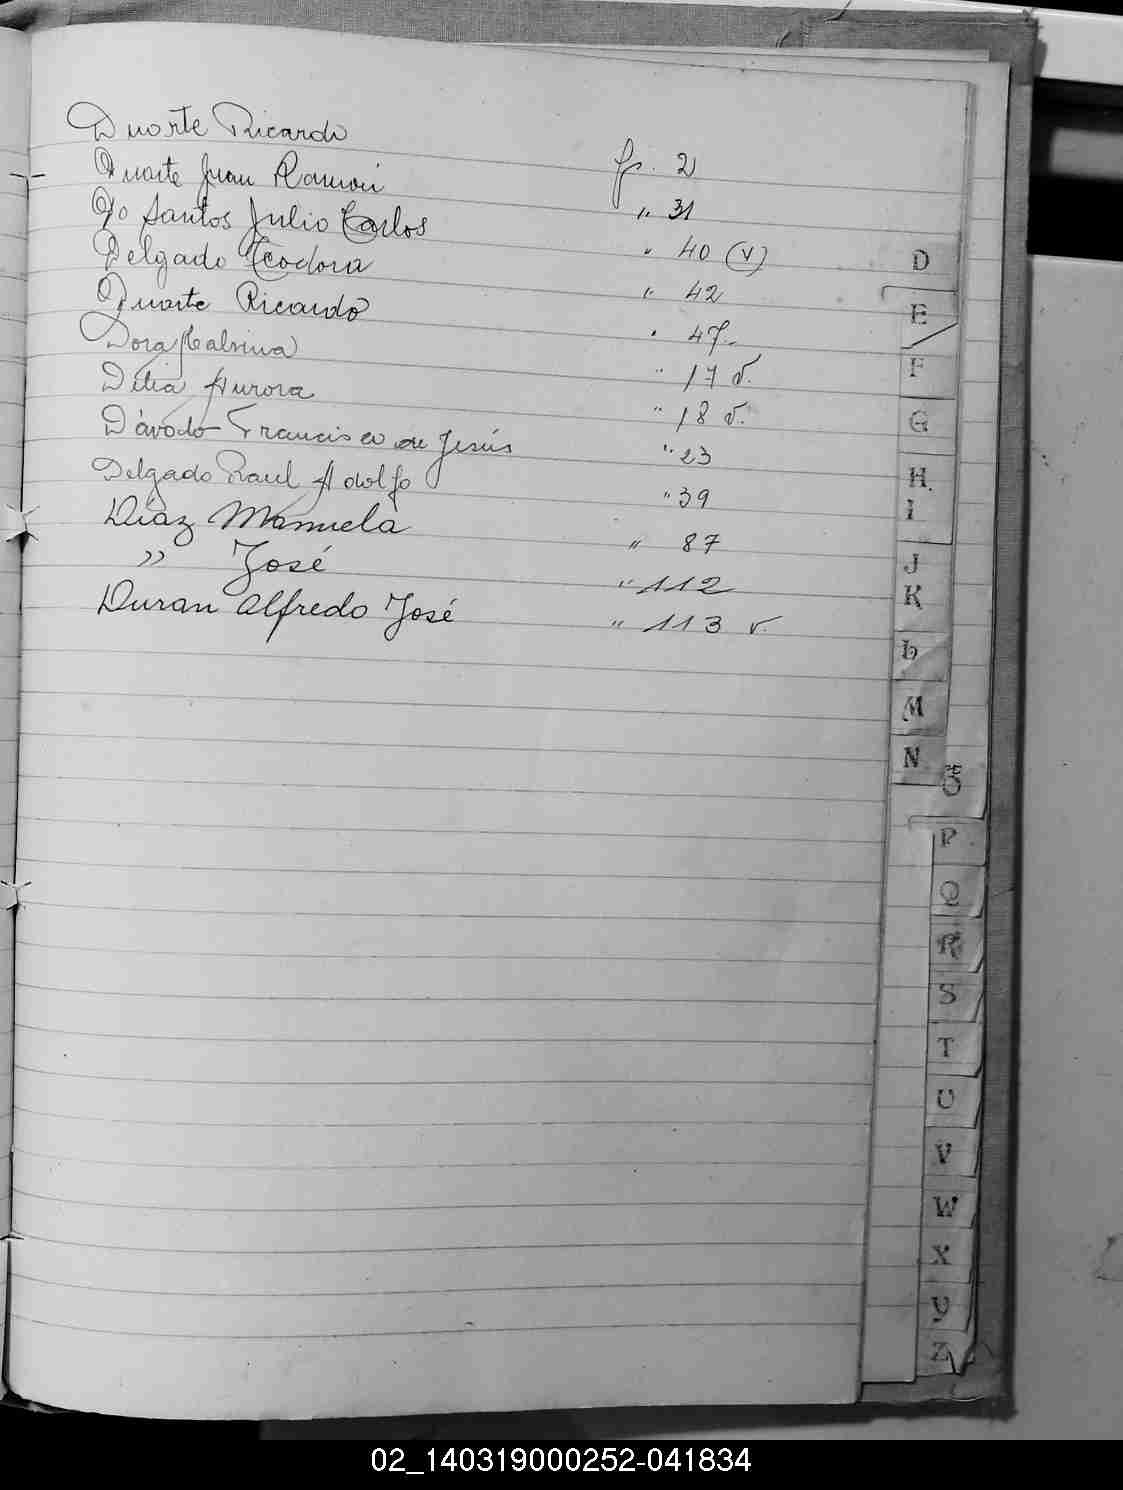 Duarte Ricardo fs. 2
Duarte Juan Ramón " 31
Do Santos Julio Carlos " 40 (v)
Delgado Teodora " 42
Duarte Ricardo " 47
Dora " 17 v.
Delia Aurora " 18 v.
Dávodo Francisco de Jesús " 23
Delgado Raul Adolfo " 39
Diaz Manuela " 87
" José " 112
Duran Alfredo José " 113 v.
D
E
F
G
H.
I
J
K
L
M
N
O
P
Q
R
S
T
U
V
W
X
Y
Z
02_140319000252-041834